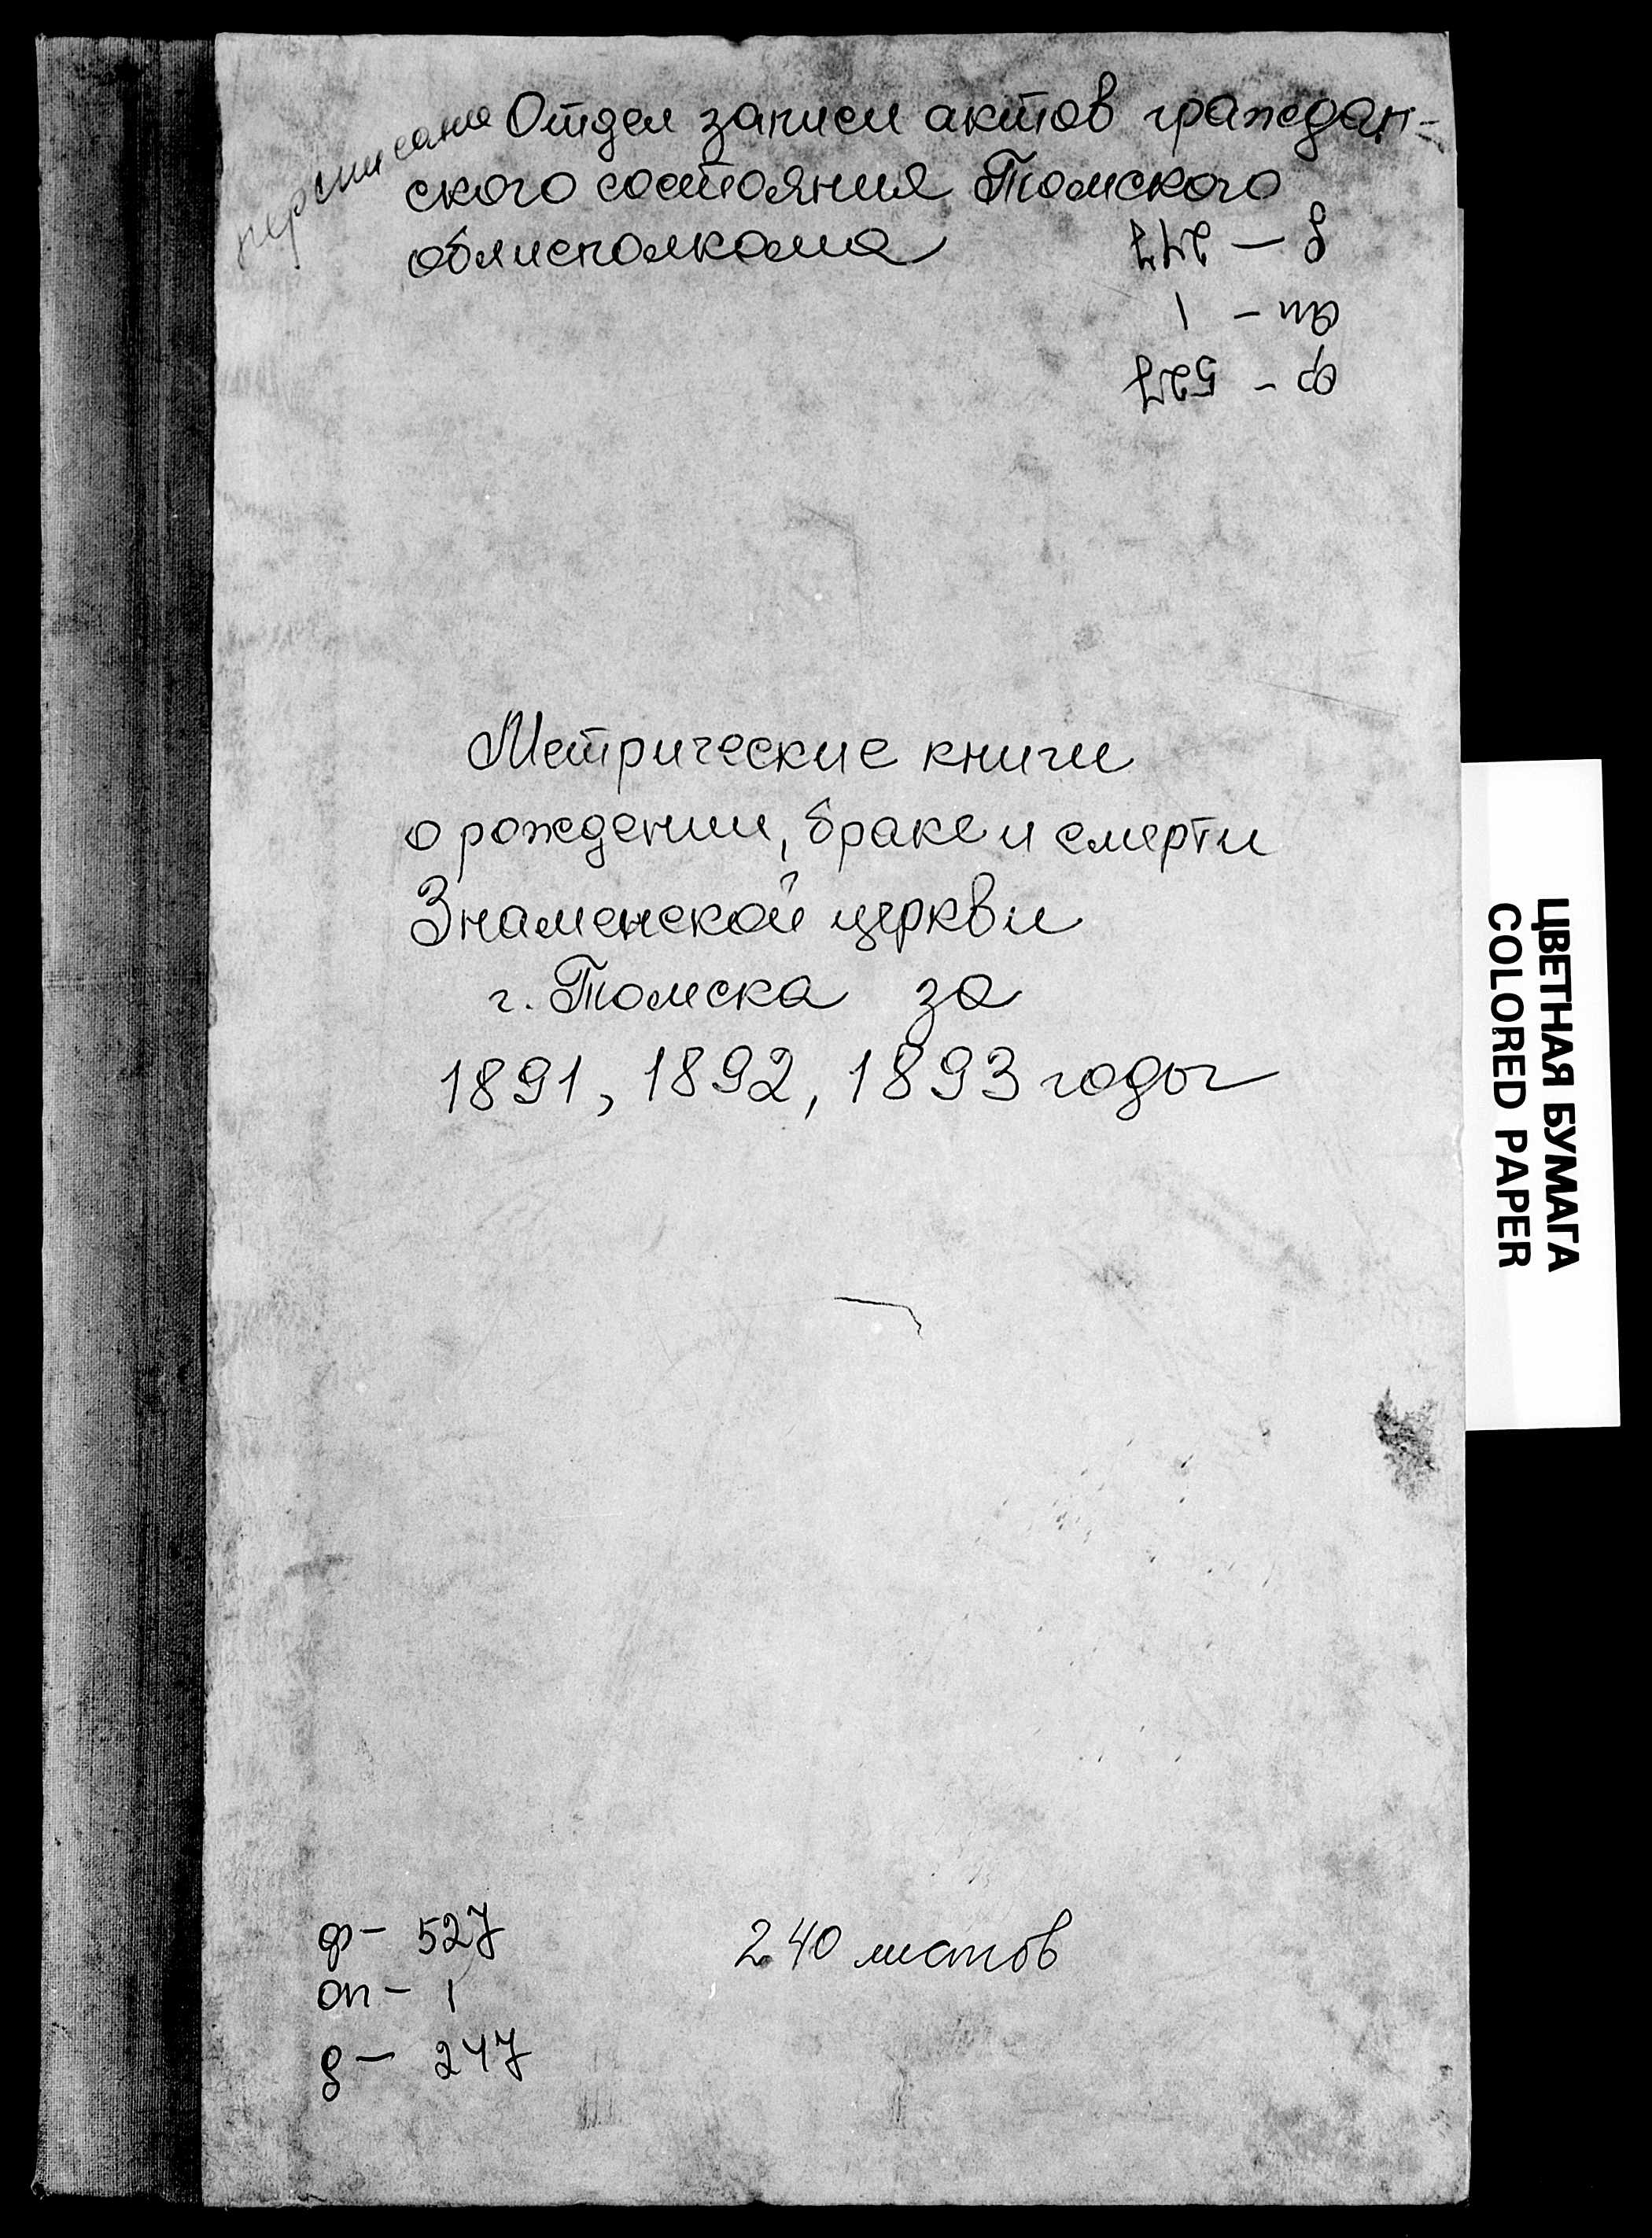 переписана
Отдел записи актов граждан-
ского состояния Томского
облисполкома
ф - 527
оп - 1
д - 247
Метрические книги
о рождении, браке и смерти
Знаменской церкви
г. Томска за
1891, 1892, 1893 годы
ЦВЕТНАЯ БУМАГА
COLORED PAPER
ф - 527
оп - 1
д - 247
240 листов